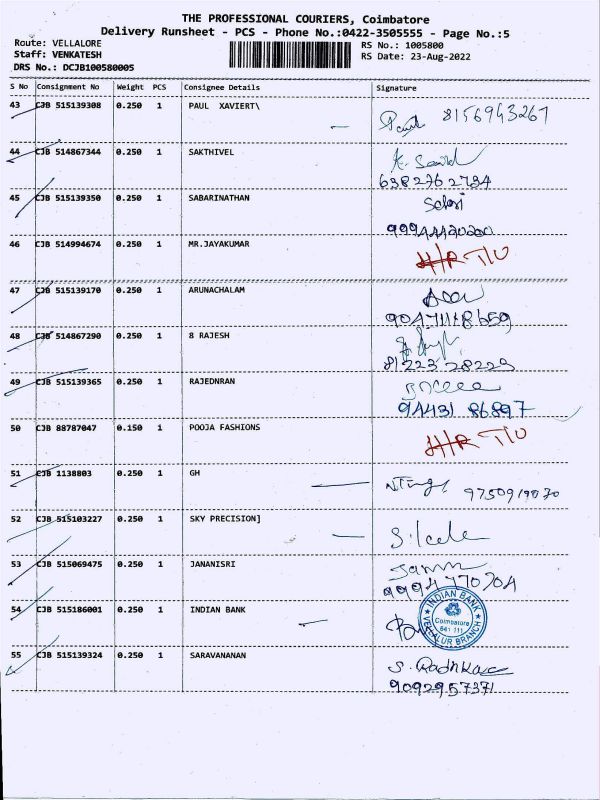 THE PROFESSIONAL COURIERS, Coimbatore
Delivery Runsheet - PCS - Phone No.:0422-3505555 - Page No.:5
Route: VELLALORE
RS No.: 1005800
Staff: VENKATESH
RS Date: 23-Aug-2022
DRS No.: DCJB100580005
S No Consignment No Weight PCS Consignee Details Signature
43 CJB 515139308 0.250 1 PAUL XAVIERT\ 8156943267
44 CJB 514867344 0.250 1 SAKTHIVEL
6382762734
45 CJB 515139350 0.250 1 SABARINATHAN
46 CJB 514994674 0.250 1 MR.JAYAKUMAR
47 CJB 515139170 0.250 1 ARUNACHALAM
48 CJB 514867290 0.250 1 8 RAJESH
81223 28229
49 CJB 515139365 0.250 1 RAJEDNRAN
94431 86897
50 CJB 88787047 0.150 1 POOJA FASHIONS
51 CJB 1138803 0.250 1 GH
52 CJB 515103227 0.250 1 SKY PRECISION]
53 CJB 515069475 0.250 1 JANANISRI
9994770704
54 CJB 515186001 0.250 1 INDIAN BANK
INDIAN BANK
Coimbatore
641 111
VELLALUR BRANCH
55 CJB 515139324 0.250 1 SARAVANANAN
9092957371